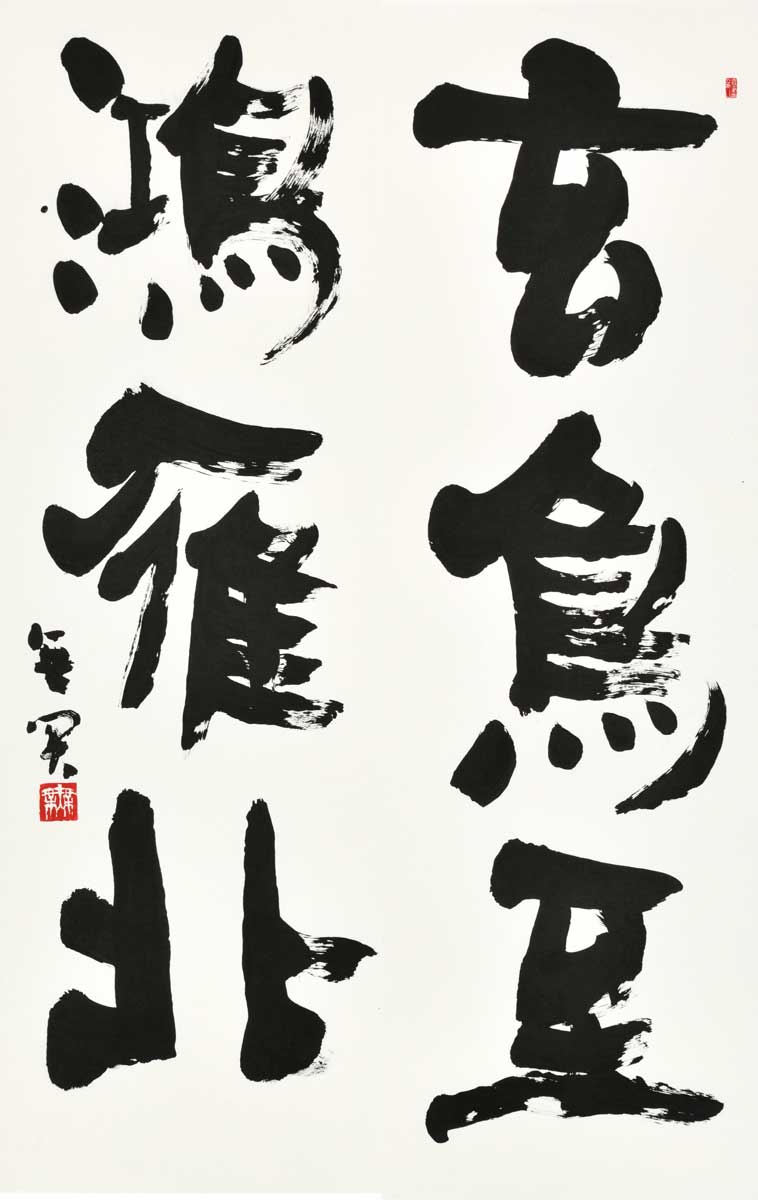 玄鳥至
鴻雁北